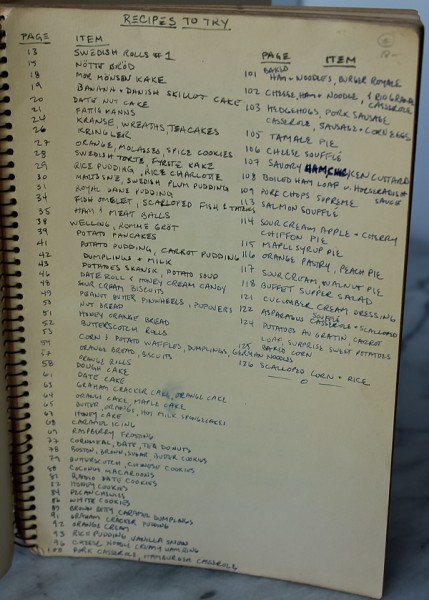 RECIPES TO TRY
PAGE ITEM
13 SWEDISH ROLLS #1
15 NÖTTE BRÖD
18 MOR MÖNSEN KAKE
19 BANANA + DANISH SKILLET CAKE
20 DATE NUT CAKE
21 FATTIGMANNS
24 KRANSE, WREATHS, TEACAKES
26 KRINGLER
27 ORANGE, MOLASSES, SPICE COOKIES
28 SWEDISH TORTE, FYRSTE KAKE
29 RICE PUDDING, RICE CHARLOTTE
30 SWEDISH PLUM PUDDING
31 ROYAL DANE PUDDING
34 FISH OMELET, SCALLOPED FISH & TATERS
35 HAM & MEAT BALLS
38 WELLING, ROMME GRÖT
39 POTATO PANCAKES
41 POTATO PUDDING, CARROT PUDDING
42 DUMPLINGS + MILK
43 POTATOES SKANSK, POTATO SOUP
46 DATE ROLL & HONEY CREAM CANDY
48 SOUR CREAM BISCUITS
49 PEANUT BUTTER PINWHEELS, POPOVERS
50 NUT BREAD
51 HONEY ORANGE BREAD
52 BUTTERSCOTCH ROLLS
54 CORN & POTATO WAFFLES, DUMPLINGS, GERMAN NOODLES
ORANGE BREAD, BISCUITS
57 ORANGE ROLLS
58 DOUGH CAKE
61 DATE CAKE
63 GRAHAM CRACKER CAKE, ORANGE CAKE
64 ORANGE CAKE, MAPLE CAKE
65 BUTTER, ORANGE, HOT MILK SPONGECAKES
67 HONEY CAKE
68 CARAMEL ICING
69 RASPBERRY FROSTING
77 CORNMEAL, DATE, TEA DONUTS
78 BOSTON, BROWN SUGAR, BUTTER COOKIES
79 BUTTERSCOTCH, CHINESE COOKIES
80 COCONUT MACAROONS
81 DATE COOKIES
82 HONEY COOKIES
84 PECAN CHEWS
86 WHITE COOKIES
89 BROWN BETTY CARAMEL DUMPLINGS
91 GRAHAM CRACKER PUDDING
92 ORANGE CREAM
93 RICE PUDDING VANILLA SNOW
96 CHEESE NOODLE CREAMY HAM RING
100 PORK CASSEROLE, HAMBURGER CASSEROLE
PAGE ITEM
101 BAKED HAM + NOODLES, BURGER ROYALE
102 CHEESE, HAM + NOODLE, & RIO GRANDE CASSEROLE
103 HEDGEHOGS, PORK SAUSAGE
CASSEROLE, SAUSAGE + CORN EGGS
105 TAMALE PIE
106 CHEESE SOUFFLÉ
107 SAVORY HAM CHICKEN CUSTARD
108 BOILED HAM LOAF w/ HORSERADISH SAUCE
109 PORK CHOPS SUPREME
113 SALMON SOUFFLÉ
114 SOUR CREAM APPLE + CHERRY
CHIFFON PIE
115 MAPLE SYRUP PIE
116 ORANGE PASTRY, PEACH PIE
117 SOUR CREAM, WALNUT PIE
118 BUFFET SUPPER SALAD
121 CUCUMBER CREAM DRESSING
122 ASPARAGUS SOUFFLE CASSEROLE + SCALLOPED
124 POTATOES AU GRATIN, CARROT
LOAF, SURPRISE SWEET POTATOES
125 BAKED CORN
126 SCALLOPED CORN + RICE